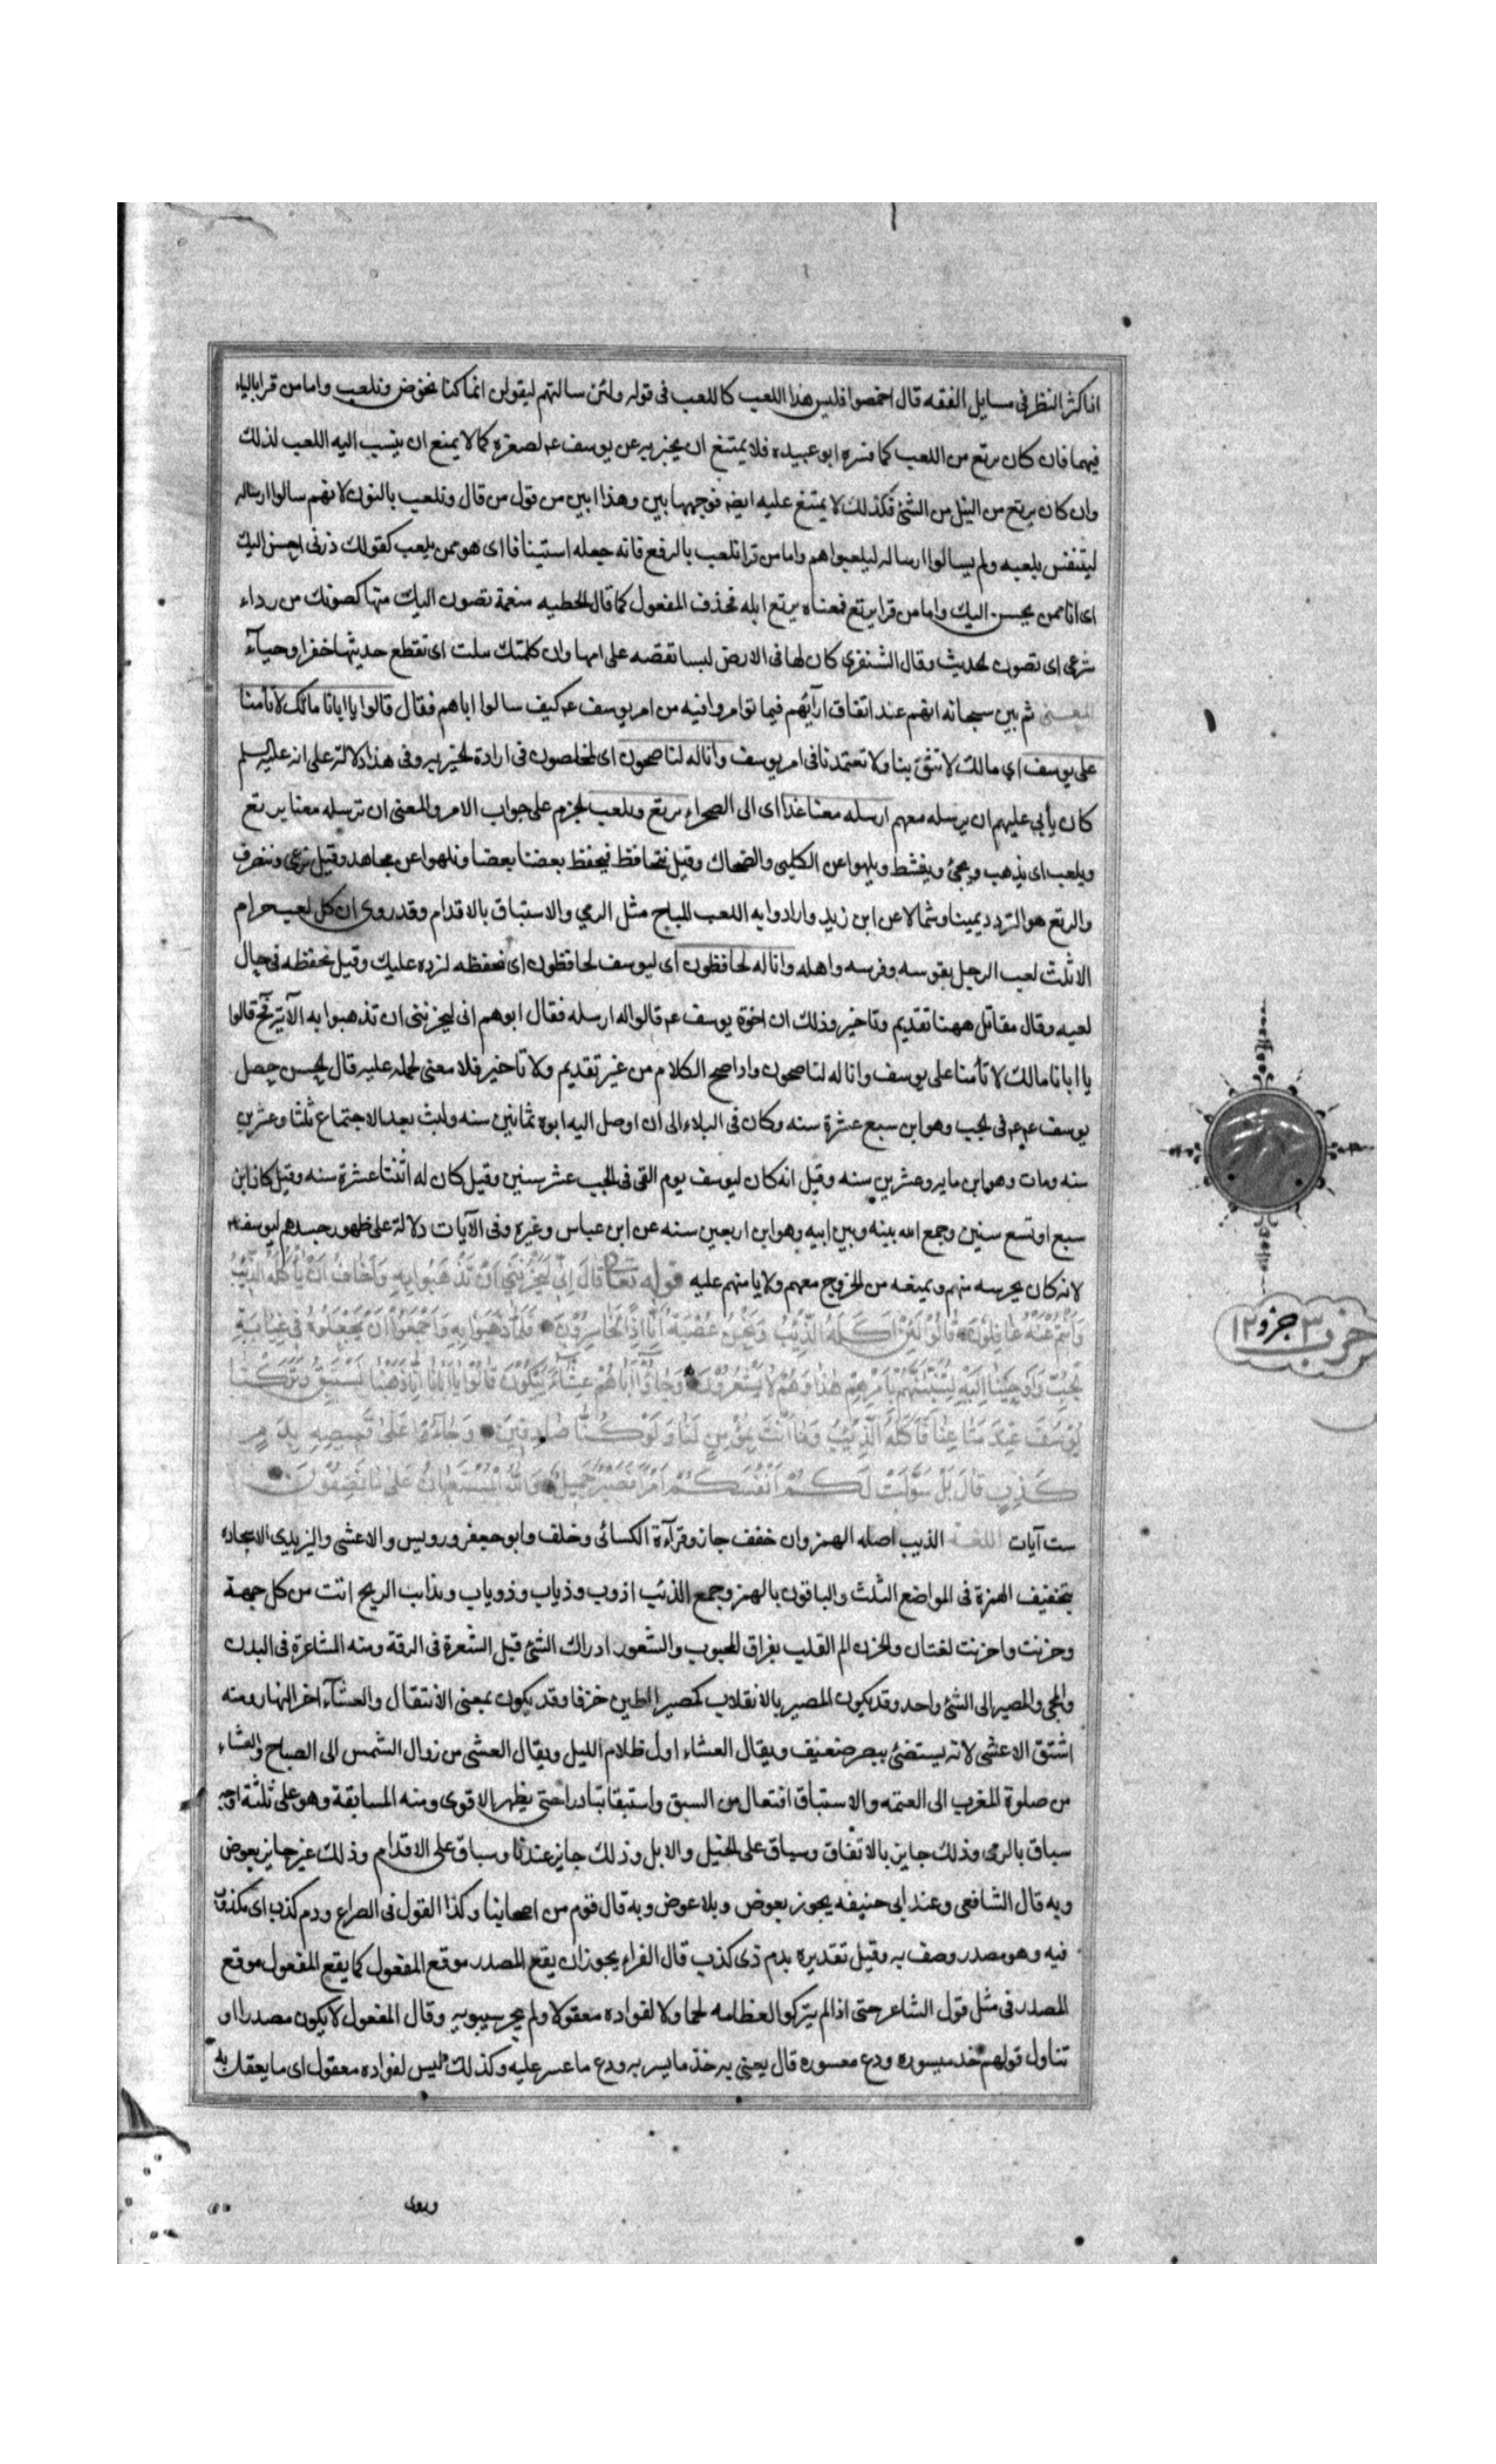 اذا كثر النظر فى مسايل الفقه قال احمضوا فليس هذا اللعب كاللعب فى قوله ولئن سالتهم ليقولن انما كنا نخوض ونلعب واما من قرا بالياء
فيهما فان كان يرتع من اللعب كما فسره ابو عبيده فلا يمتنع ان يخبر به عن يوسف عم لصغره كما لا يمنع ان ينسب اليه اللعب لذلك
وان كان يرتع من النيل من الشئ فكذلك لا يمتنع عليه ايضه فوجهها بين وهذا ابين من قول من قال ونلعب بالنون لانهم سالوا ارساله
ليتنفس بلعبه ولم يسالوا ارساله ليلعبوا هم واما من قرا نلعب بالرفع فانه جعله استينافا اى هو ممن يلعب كقولك ذرنى احسن اليك
اى انا ممن يحسن اليك واما من قرا يرتع فمعناه يرتع ابله فحذف المفعول كما قال الحطيه منعمة تصون اليك منها كصونك من رداء
شرعى اى تصون الحديث وقال الشنفرى كان لها فى الارض لبسا تقصه على امها وان كلمتك سلت اى تقطع حديثها خفرا وحيآء
المعنى ثم بين سبحانه انهم عند اتفاق ارآئهم فيما توامروا فيه من امر يوسف عم كيف سالوا اباهم فقال قالوا يا ابانا مالك لا تامنا
على يوسف اى مالك لا تثق بنا ولا تعتمدنا فى امر يوسف وانا له لناصحون اى لمخلصون فى ارادة الخير به وفى هذا دلالة على انه عليه السلم
كان يأبى عليهم ان يرسله معهم ارسله معنا غدا اى الى الصحراء يرتع ويلعب الجزم على جواب الامر والمعنى ان ترسله معنا يرتع
ويلعب اى يذهب ويجئ وينشط ويلهوا عن الكلبى والضحاك وقيل نتحافظ فيحفظ بعضنا بعضا ونلهوا عن مجاهد وقيل نرعى ونتصرف
والرتع هو التردد يمينا وشمالا عن ابن زيد وارادوا به اللعب المباح مثل الرمي والاستباق بالاقدام وقد روى ان كل لعب حرام
الا ثلث لعب الرجل بقوسه وفرسه واهله وانا له لحافظون اى ليوسف لحافظون اى نحفظه لنرده عليك وقيل نحفظه فى حال
لعبه وقال مقاتل ههنا تقديم وتاخير وذلك ان اخوة يوسف عم قالوا له ارسله فقال ابوهم انى ليحزننى ان تذهبوا به الآية فح قالوا
يا ابانا مالك لا تأمنا على يوسف وانا له لناصحون واذا صح الكلام من غير تقديم ولا تاخير فلا معنى لحمله عليه قال الحسن جعل
يوسف عم فى الجب وهو ابن سبع عشرة سنه وكان فى البلاء الى ان اوصل اليه ابوه ثمانين سنه ولبث بعد الاجتماع ثلثا وعشرين
سنه ومات وهو ابن مايه وعشرين سنه وقيل انه كان ليوسف يوم القى فى الجب عشر سنين وقيل كان له اثنتا عشرة سنه وقيل كان ابن
سبع او تسع سنين وجمع الله بينه وبين ابيه وهو ابن اربعين سنه عن ابن عباس وغيره وفى الآيات دلالة على ظهور حسدهم ليوسف عم
لانه كان يحرسه منهم ويمنعه من الخروج معهم ولا يامنهم عليه قوله تعالى قَالَ اِنّى لَيَحْزُنُنِى اَنْ تَذْهَبُوا بِهِ وَاَخَافُ اَنْ يَأْكُلَهُ الذِّئْبُ
وَاَنْتُمْ عَنْهُ غَافِلُونَ قَالُوا لَئِنْ اَكَلَهُ الذِّئْبُ وَنَحْنُ عُصْبَةٌ اِنَّا اِذًا لَخَاسِرُونَ فَلَمَّا ذَهَبُوا بِهِ وَاَجْمَعُوا اَنْ يَجْعَلُوهُ فِى غَيَابَةِ
الْجُبِّ وَاَوْحَيْنَا اِلَيْهِ لَتُنَبِّئَنَّهُمْ بِاَمْرِهِمْ هٰذَا وَهُمْ لَا يَشْعُرُونَ وَجَاؤُا اَبَاهُمْ عِشَاءً يَبْكُونَ قَالُوا يَا اَبَانَا اِنَّا ذَهَبْنَا نَسْتَبِقُ وَتَرَكْنَا
يُوسُفَ عِنْدَ مَتَاعِنَا فَاَكَلَهُ الذِّئْبُ وَمَا اَنْتَ بِمُؤْمِنٍ لَنَا وَلَوْ كُنَّا صَادِقِينَ وَجَاءُوا عَلَى قَمِيصِهِ بِدَمٍ
كَذِبٍ قَالَ بَلْ سَوَّلَتْ لَكُمْ اَنْفُسُكُمْ اَمْرًا فَصَبْرٌ جَمِيلٌ وَاللهُ الْمُسْتَعَانُ عَلَى مَا تَصِفُونَ
ست آيات اللغة الذيب اصله الهمز وان خفف جاز وقرآءة الكسائى وخلف وابو جعفر ورويس والاعشى واليزيدى
بتخفيف الهمزة فى المواضع الثلث والباقون بالهمز وجمع الذئب اذوب وذياب وذوياب وتذابت الريح اتت من كل جهة
وحزنت واحزنت لغتان والحزن الم القلب بفراق المحبوب والشعور ادراك الشئ قبل الشعرة فى الرقة ومنه المشاعرة فى البدن
والمجى والمصير الى الشئ واحد وقد يكون المصير بالانقلاب كمصير الطين خزفا وقد يكون بمعنى الانتقال والعشآء اخر النهار ومنه
اشتق الاعشى لانه يستضئ ببصر ضعيف ويقال العشاء اول ظلام الليل ويقال العشى من زوال الشمس الى الصباح والعشاء
من صلوة المغرب الى العتمه والاستباق افتعال من السبق واستبقا تبادرا حتى يظهر الاقوى ومنه المسابقة وهو على ثلثة اوجه
سباق بالرمى وذلك جايز بالاتفاق وسباق على الخيل والابل وذلك جايز عندنا وسباق على الاقدام وذلك غير جايز بعوض
وبه قال الشافعى وعند ابى حنيفه يجوز بعوض وبلا عوض وبه قال قوم من اصحابنا وكذا القول فى الصراع ودم كذب اى مكذوب
فيه وهو مصدر وصف به وقيل تقديره بدم ذى كذب قال الفراء يجوز ان يقع المصدر موقع المفعول كما يقع المفعول موقع
المصدر فى مثل قول الشاعر حتى اذا لم يتركوا لعظامه لحما ولا لفواده معقولا ولم يجز سيبويه وقال المفعول لا يكون مصدرا او
تناول قولهم خذ ميسوره ودع معسوره قال يعنى به خذ ما يسر به ودع ما عسر عليه وكذلك ليس لفواده معقول اى ما يعقل به
حزب ٣ جزو ١٢